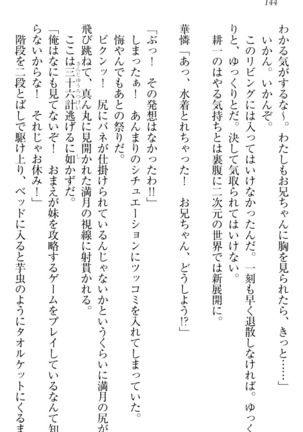 144
わかる気がするな～。わたしもお兄ちゃんに胸を見られたら、きっと……」
いかん、いかんぞ。
このリビングには入ってはいけなかったんだ。一刻も早く退散しなければ。ゆっく
りと、ゆっくりとだ。決して気取られてはいけない。
耕一のはやる気持ちとは裏腹に二次元の世界では新展開に。
華憐「あっ、水着とれちゃった！　お兄ちゃん、どうしよう!?」
「ぶっ！　その発想はなかったわ!!」
しまったぁ！　あんまりのシチュエーションにツッコミを入れてしまっていた。
悔やんでもあとの祭りだ。
ビクンッ！　尻にバネが仕掛けられているんじゃないかというくらいに満月の尻が
飛び跳ねて、真ん丸に見開かれた満月の視線に射貫かれる。
ここは三十六計逃げるに如かずだ。
「俺はなにも見てないぞ！　おまえが妹を攻略するゲームをプレイしているなんて知
らないからな！　それじゃお休み！」
階段を二段とばしで駆け上り、ベッドに入ると芋虫のようにタオルケットにくるま